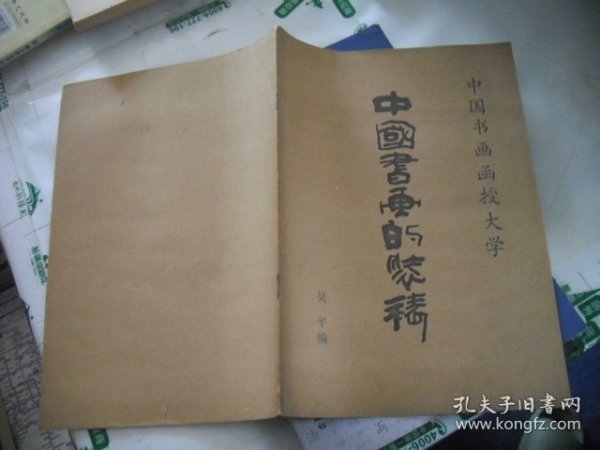 中国书画函授大学
中國書画的裝裱
吴平编
孔夫子旧书网
www.kongfz.com
4006-